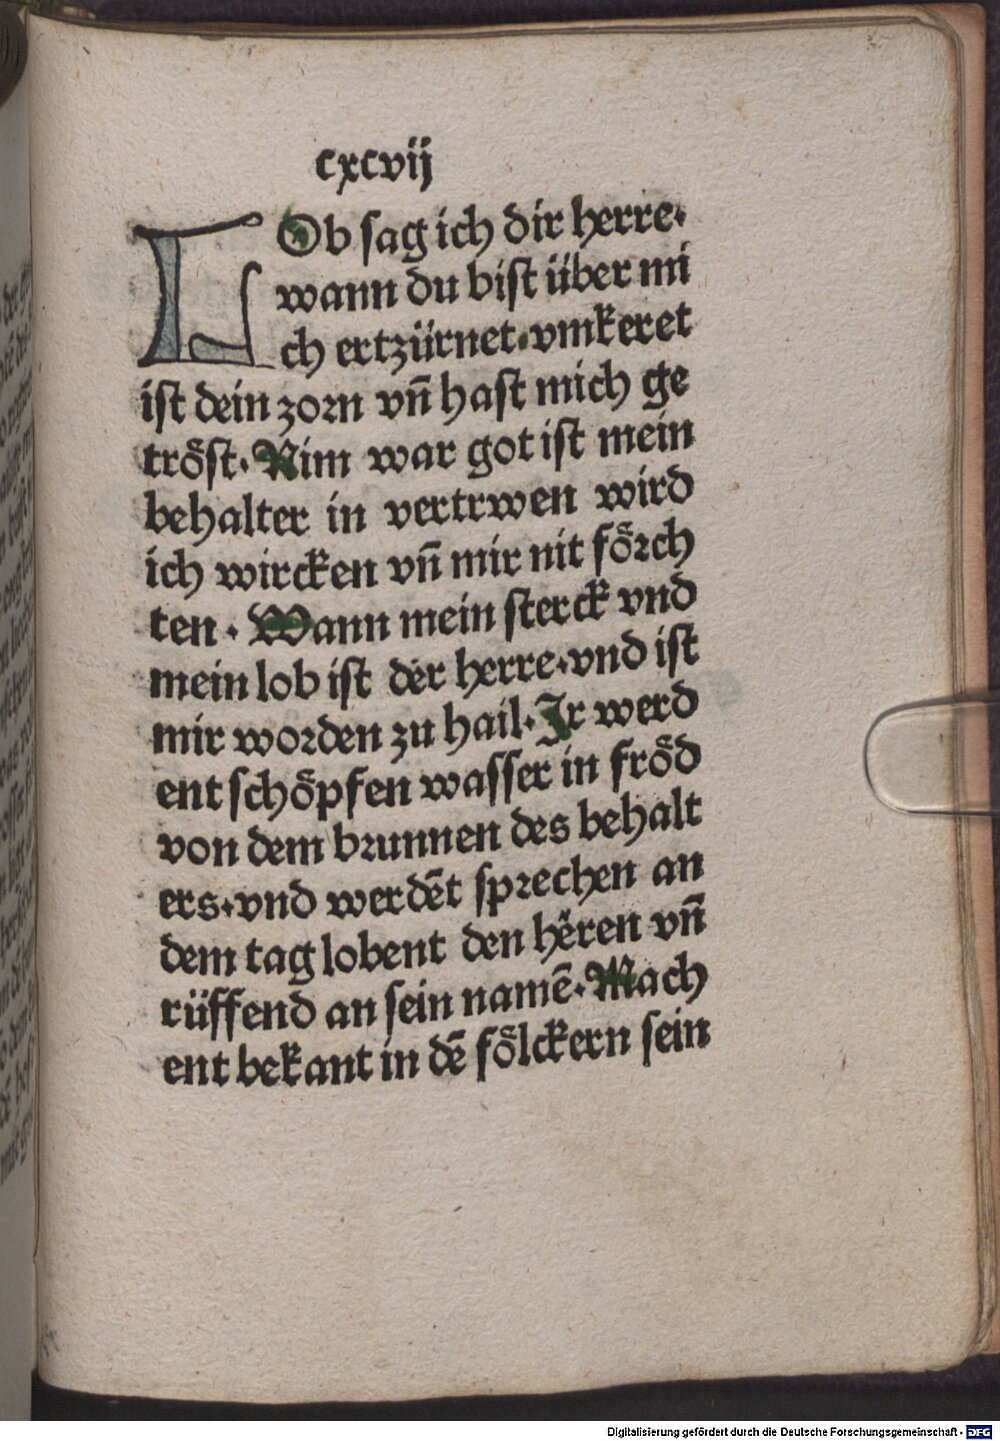 cxcvij
LOb sag ich dir herre·
wann du bist über mi
ch ertzürnet·vmkeret
ist dein zorn vn̄ hast mich ge
trőst·Nim war got ist mein
behalter in vertrwen wird
ich wircken vn̄ mir nit főrch
ten·Wann mein sterck vnd
mein lob ist der herre·vnd ist
mir worden zu hail·Jr werd
ent schőpfen wasser in frőd
von dem brunnen des behalt
ers·vnd werdēt sprechen an
dem tag lobent den hëren vn̄
rüffend an sein namē·Mach
ent bekant in dē főlckern sein
Digitalisierung gefördert durch die Deutsche Forschungsgemeinschaft - DFG